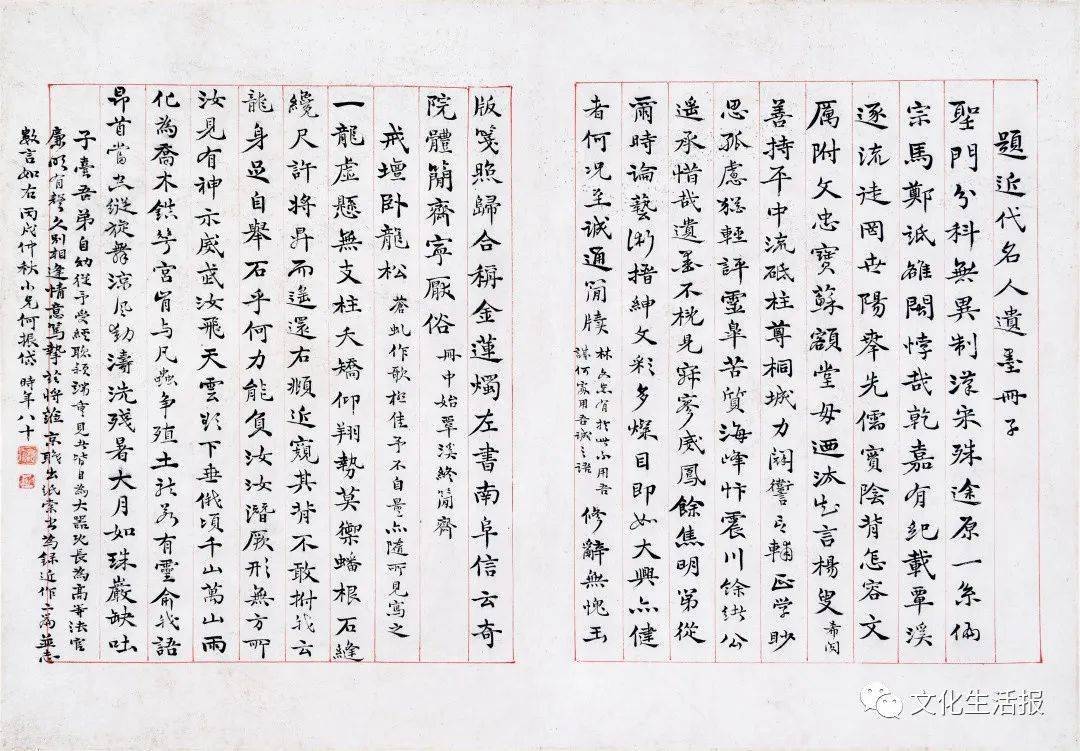 題近代名人遺墨冊子
聖門分科無異制漢宋殊途原一系偏
宗馬鄭詆雒閩悖哉乾嘉有紀載覃溪
逐流徒罔世陽奉先儒實陰背怎容文
厲附文忠寶蘇額堂毋迺汰知言楊叟希閔
善持平中流砥柱尊桐城力闢言輔正学眇
思孤慮猶輕評靈皋苦質海峰忭震川餘緒公
遙承惜哉遺墨不概見寂寥威鳳餘焦明第從
爾時論藝術搢紳文彩多燦目即如大興亦健
者何况至誠通簡牘 修辭無愧玉
版箋照歸合稱金蓮燭左書南阜信云奇
院體簡齋寧厭俗冊中始覃溪終簡齋
戒壇卧龍松蒼虬作歌極佳予不自量亦隨所見寫之
一龍虛懸無支柱夭矯仰翔勢莫禦蟠根石縫
纔尺許將昇而遙還右頫近窺其背不敢拊我云
龍身足自舉石乎何力能負汝汝潛厥形無方所
汝見有神示威武汝飛天雲影下垂俄頃千山萬山雨
化為喬木鎮梵宮肯与凡蟲争殖土龍若有靈俞我語
昂首當空縱旋舞涼風動濤洗殘暑大月如珠巖缺吐
子臺吾弟自幼從予受經聰穎端重見者皆目為大器及長為高等法官
廉明有聲久別相逢情意篤摯於將離京職出紙索書為錄近作二篇並志
數言如右丙戌仲秋小兄何振岱時年八十
文化生活报